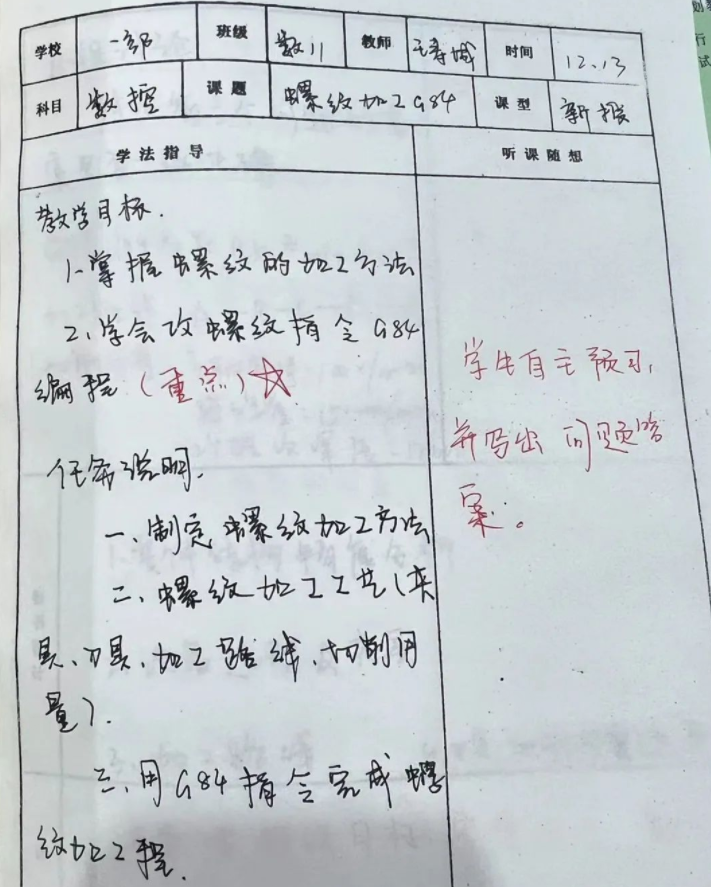 学校 一部 班级 数11 教师 王寿城 时间 12.13
科目 数控 课题 螺纹加工G84 课型 新授
学法指导 听课随想
教学目标.
1.掌握螺纹的加工方法
2.学会攻螺纹指令G84
编程(重点)☆
任务说明.
一、制定螺纹加工方法
二、螺纹加工工艺(夹
具、刀具、加工路线、切削用
量).
三、用G84指令完成螺
纹加工程.
学生自主预习,
并写出问题答
案。